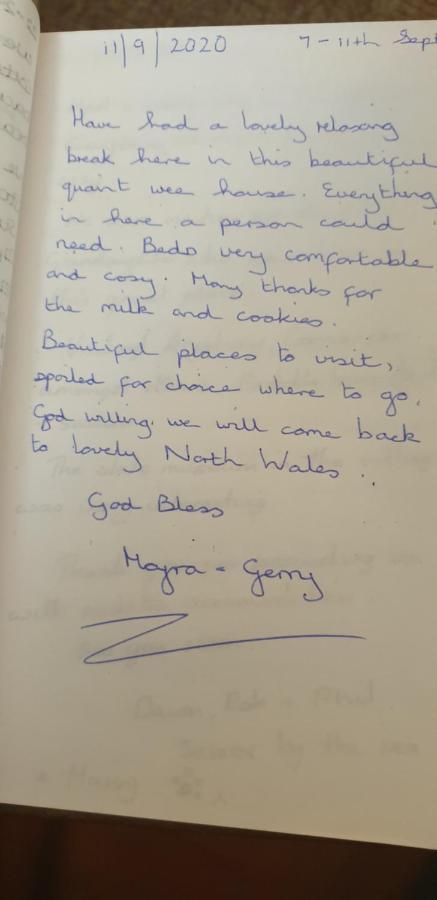 11/9/2020 7-11th Sept
Have had a lovely relaxing
break here in this beautiful
quaint wee house. Everything
in here a person could
need. Beds very comfortable
and cosy. Many thanks for
the milk and cookies.
Beautiful places to visit,
spoiled for choice where to go.
God willing we will come back
to lovely North Wales..
God Bless
Gerry